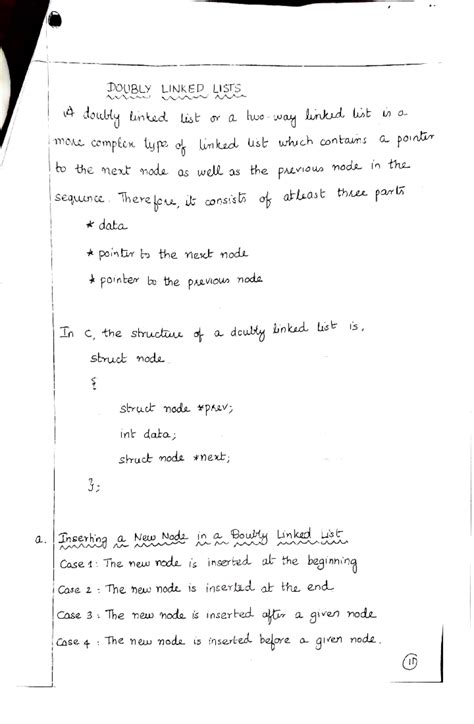 DOUBLY LINKED LISTS
A doubly linked list or a two-way linked list is a
more complex type of linked list which contains a pointer
to the next node as well as the previous node in the
sequence. Therefore, it consists of atleast three parts
* data
* pointer to the next node
* pointer to the previous node
In C, the structure of a doubly linked list is,
struct node
{
struct node *prev;
int data;
struct node *next;
};
a. Inserting a New Node in a Doubly Linked List
Case 1 : The new node is inserted at the beginning
Case 2 : The new node is inserted at the end
Case 3 : The new node is inserted after a given node
Case 4 : The new node is inserted before a given node.